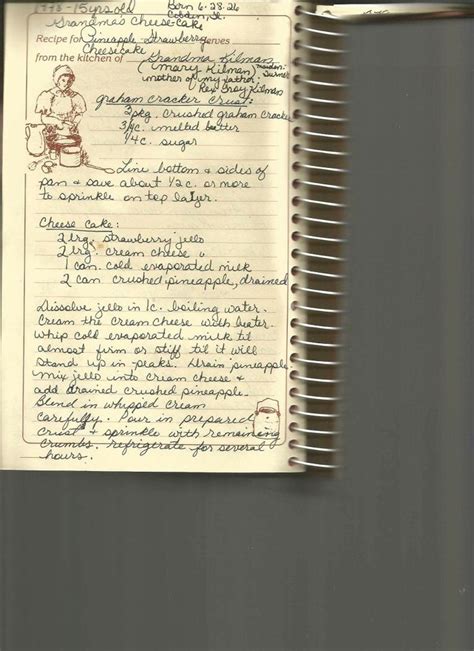 1998 - 75 yrs old Born 6-28-26
Grandma's Cheese Cake Cobden, Il.
Recipe for Pineapple Strawberry Serves
Cheesecake
from the kitchen of Grandma Kilman
(Mary Kilman) maiden: Turner
mother of my father:
Rev. Gray Kilman
graham cracker crust:
2 pkg. crushed graham cracker
3/4 c. melted butter
1/4 c. sugar
Line bottom & sides of
pan & save about 1/2 c. or more
to sprinkle on top layer.
Cheese Cake:
2 lrg. strawberry jello
2 lrg. cream cheese
1 can cold evaporated milk
2 can crushed pineapple, drained
Dissolve jello in 1 c. boiling water.
Cream the cream cheese with beater.
Whip cold evaporated milk til
almost firm or stiff til it will
stand up in peaks. Drain pineapple
mix jello into cream cheese &
add drained crushed pineapple.
Blend in whipped cream
carefully. Pour in prepared
crust & sprinkle with remaining
crumbs. refrigerate for several
hours.